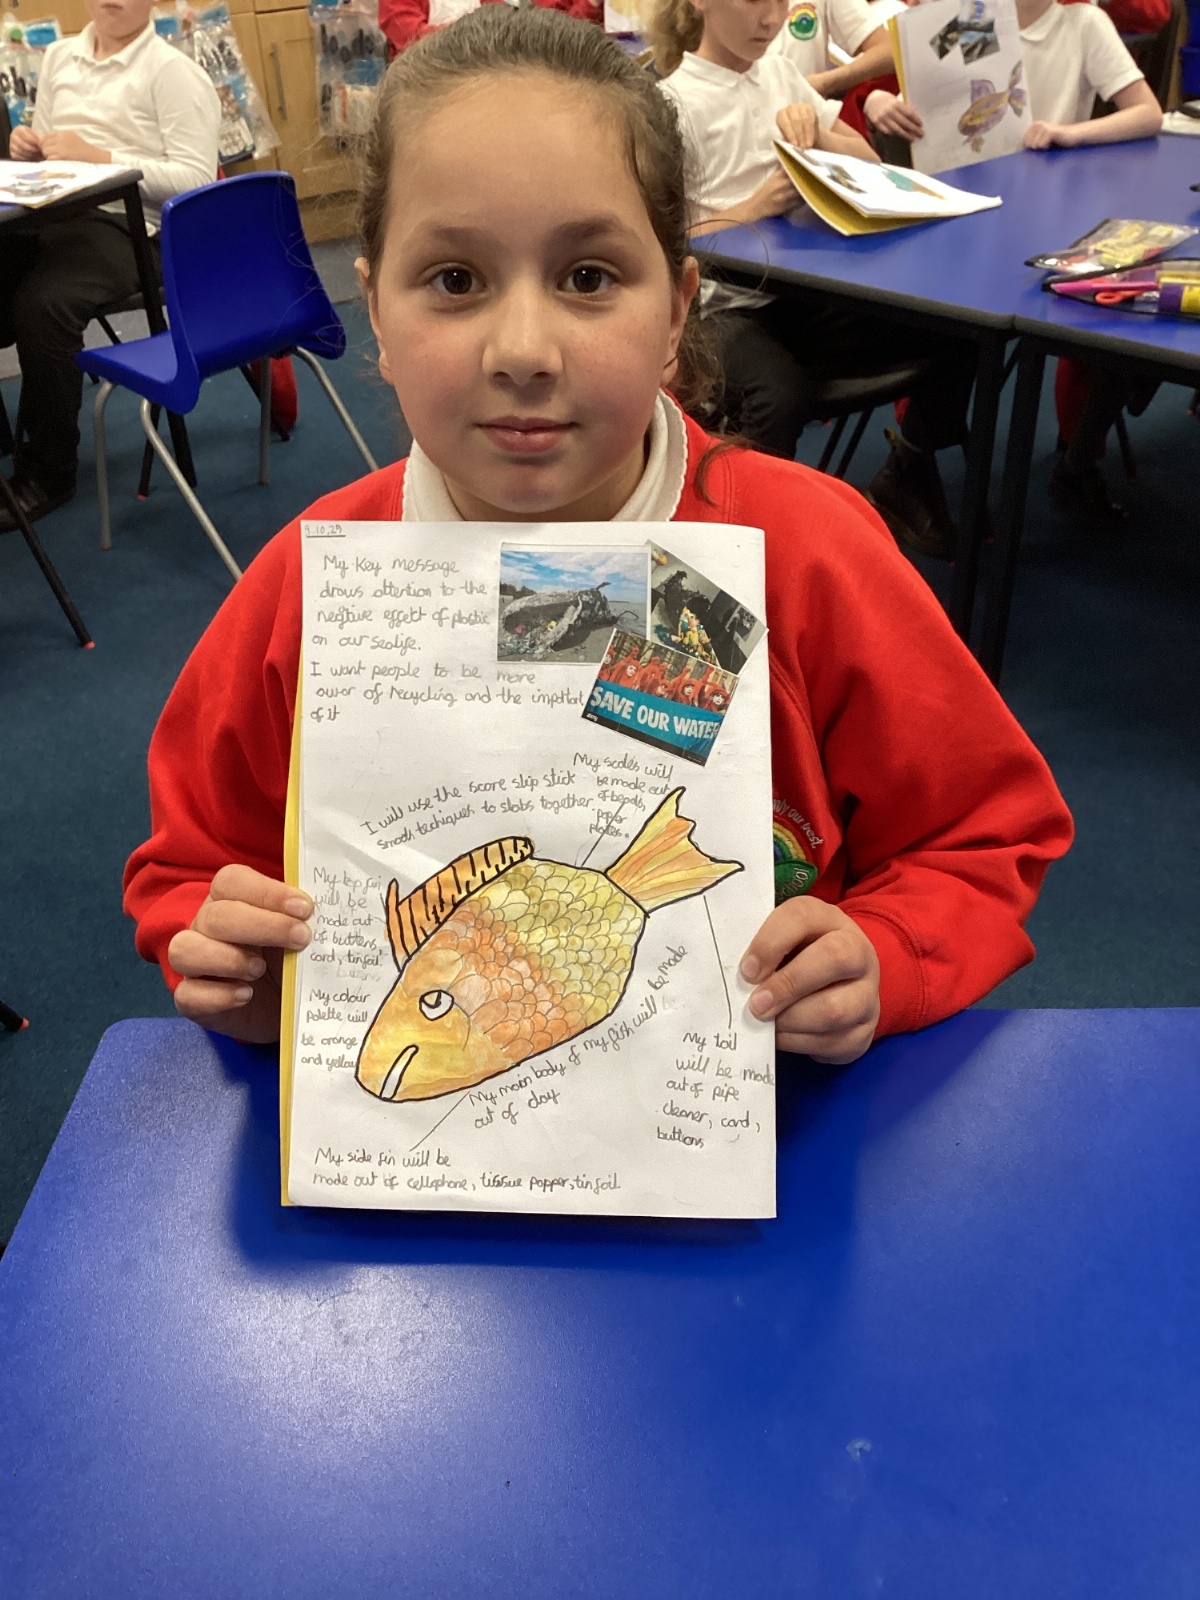 9.10.25
My key message
draws attention to the
negtive effect of plastic
on our sealife.
I want people to be more
awar of recycling and the important
of it
SAVE OUR WATER
My scales will
be made out
of beads,
paper
plates.
I will use the score slip stick
smooth techiques to slabs together
My top fin
will be
made out
of buttons,
card, tinfoil.
My colour
palette will
be orange
and yellow
My main body of my fish will be made
out of clay
My tail
will be made
out of pipe
cleaner, card,
buttons
My side fin will be
made out of cellophone, tissue papper, tinfoil
only our best